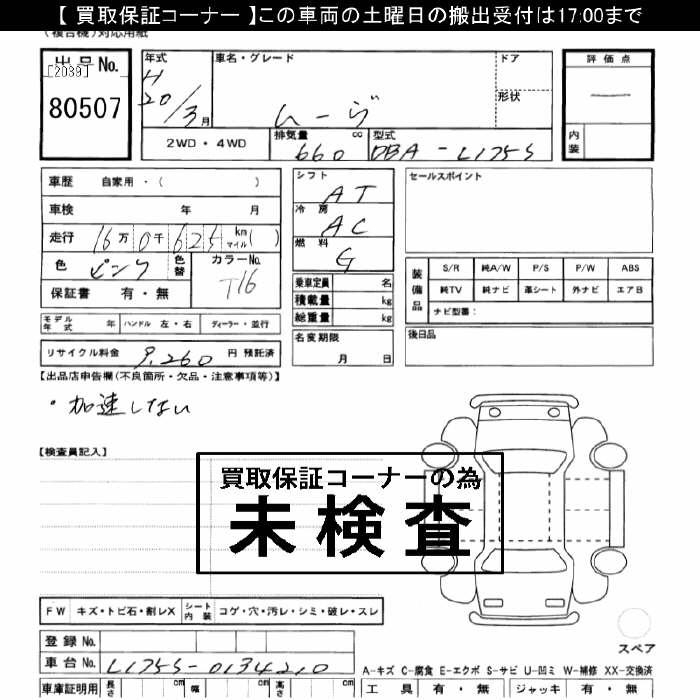 【 買取保証コーナー 】この車両の土曜日の搬出受付は17:00まで
(複合機)対応用紙
出品No.
[2039]
80507
年式
H
20/3月
車名・グレード
ムーヴ
ドア
形状
評価点
―
内装
2WD・4WD
排気量 cc
660
型式
DBA-L175S
車歴 自家用・( )
車検 年 月
走行 16万0千625 km マイル( )
色 ピンク
色替
カラーNo.
T16
保証書 有・無
シフト
AT
冷房
AC
燃料
G
乗車定員 名
積載量 kg
総重量 kg
セールスポイント
装備品
S/R 純A/W P/S P/W ABS
純TV 純ナビ 革シート 外ナビ エアB
ナビ型番:
モデル年式 年 ハンドル 左・右 ディーラー・並行
名変期限
月 日
後日品
リサイクル料金 9,260 円 預託済
【出品店申告欄(不良箇所・欠品・注意事項等)】
・加速しない
【検査員記入】
買取保証コーナーの為
未検査
FW キズ・トビ石・割レX シート内装 コゲ・穴・汚レ・シミ・破レ・スレ
スペア
登録No.
車台No. L175S-0134210
A-キズ C-腐食 E-エクボ S-サビ U-凹ミ W-補修 XX-交換済
車庫証明用 長さ cm 幅 cm 高さ cm
工具 有・無 ジャッキ 有・無